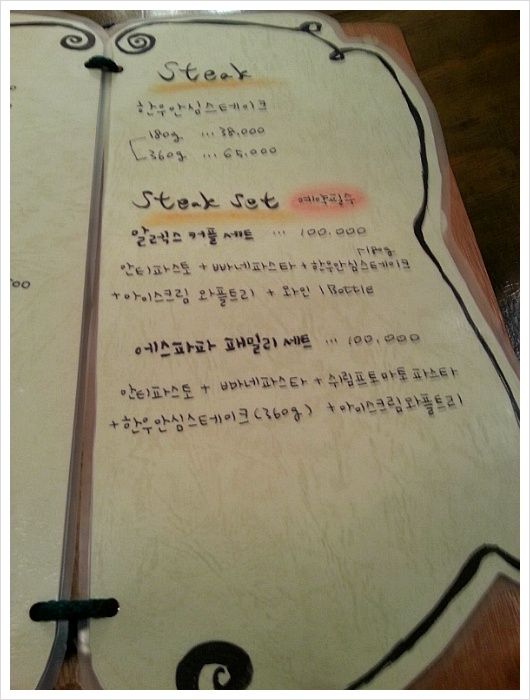 Steak
한우안심스테이크
180g ... 38,000
360g ... 65,000
Steak Set 예약필수
알렉스 커플 세트 ... 100,000
180g
안티파스토 + 빠네파스타 + 한우안심스테이크
+ 아이스크림 와플트리 + 와인 1Bottle
에스파파 패밀리 세트 ... 100,000
안티파스토 + 빠네파스타 + 쉬림프토마토파스타
+ 한우안심스테이크 (360g) + 아이스크림와플트리
00